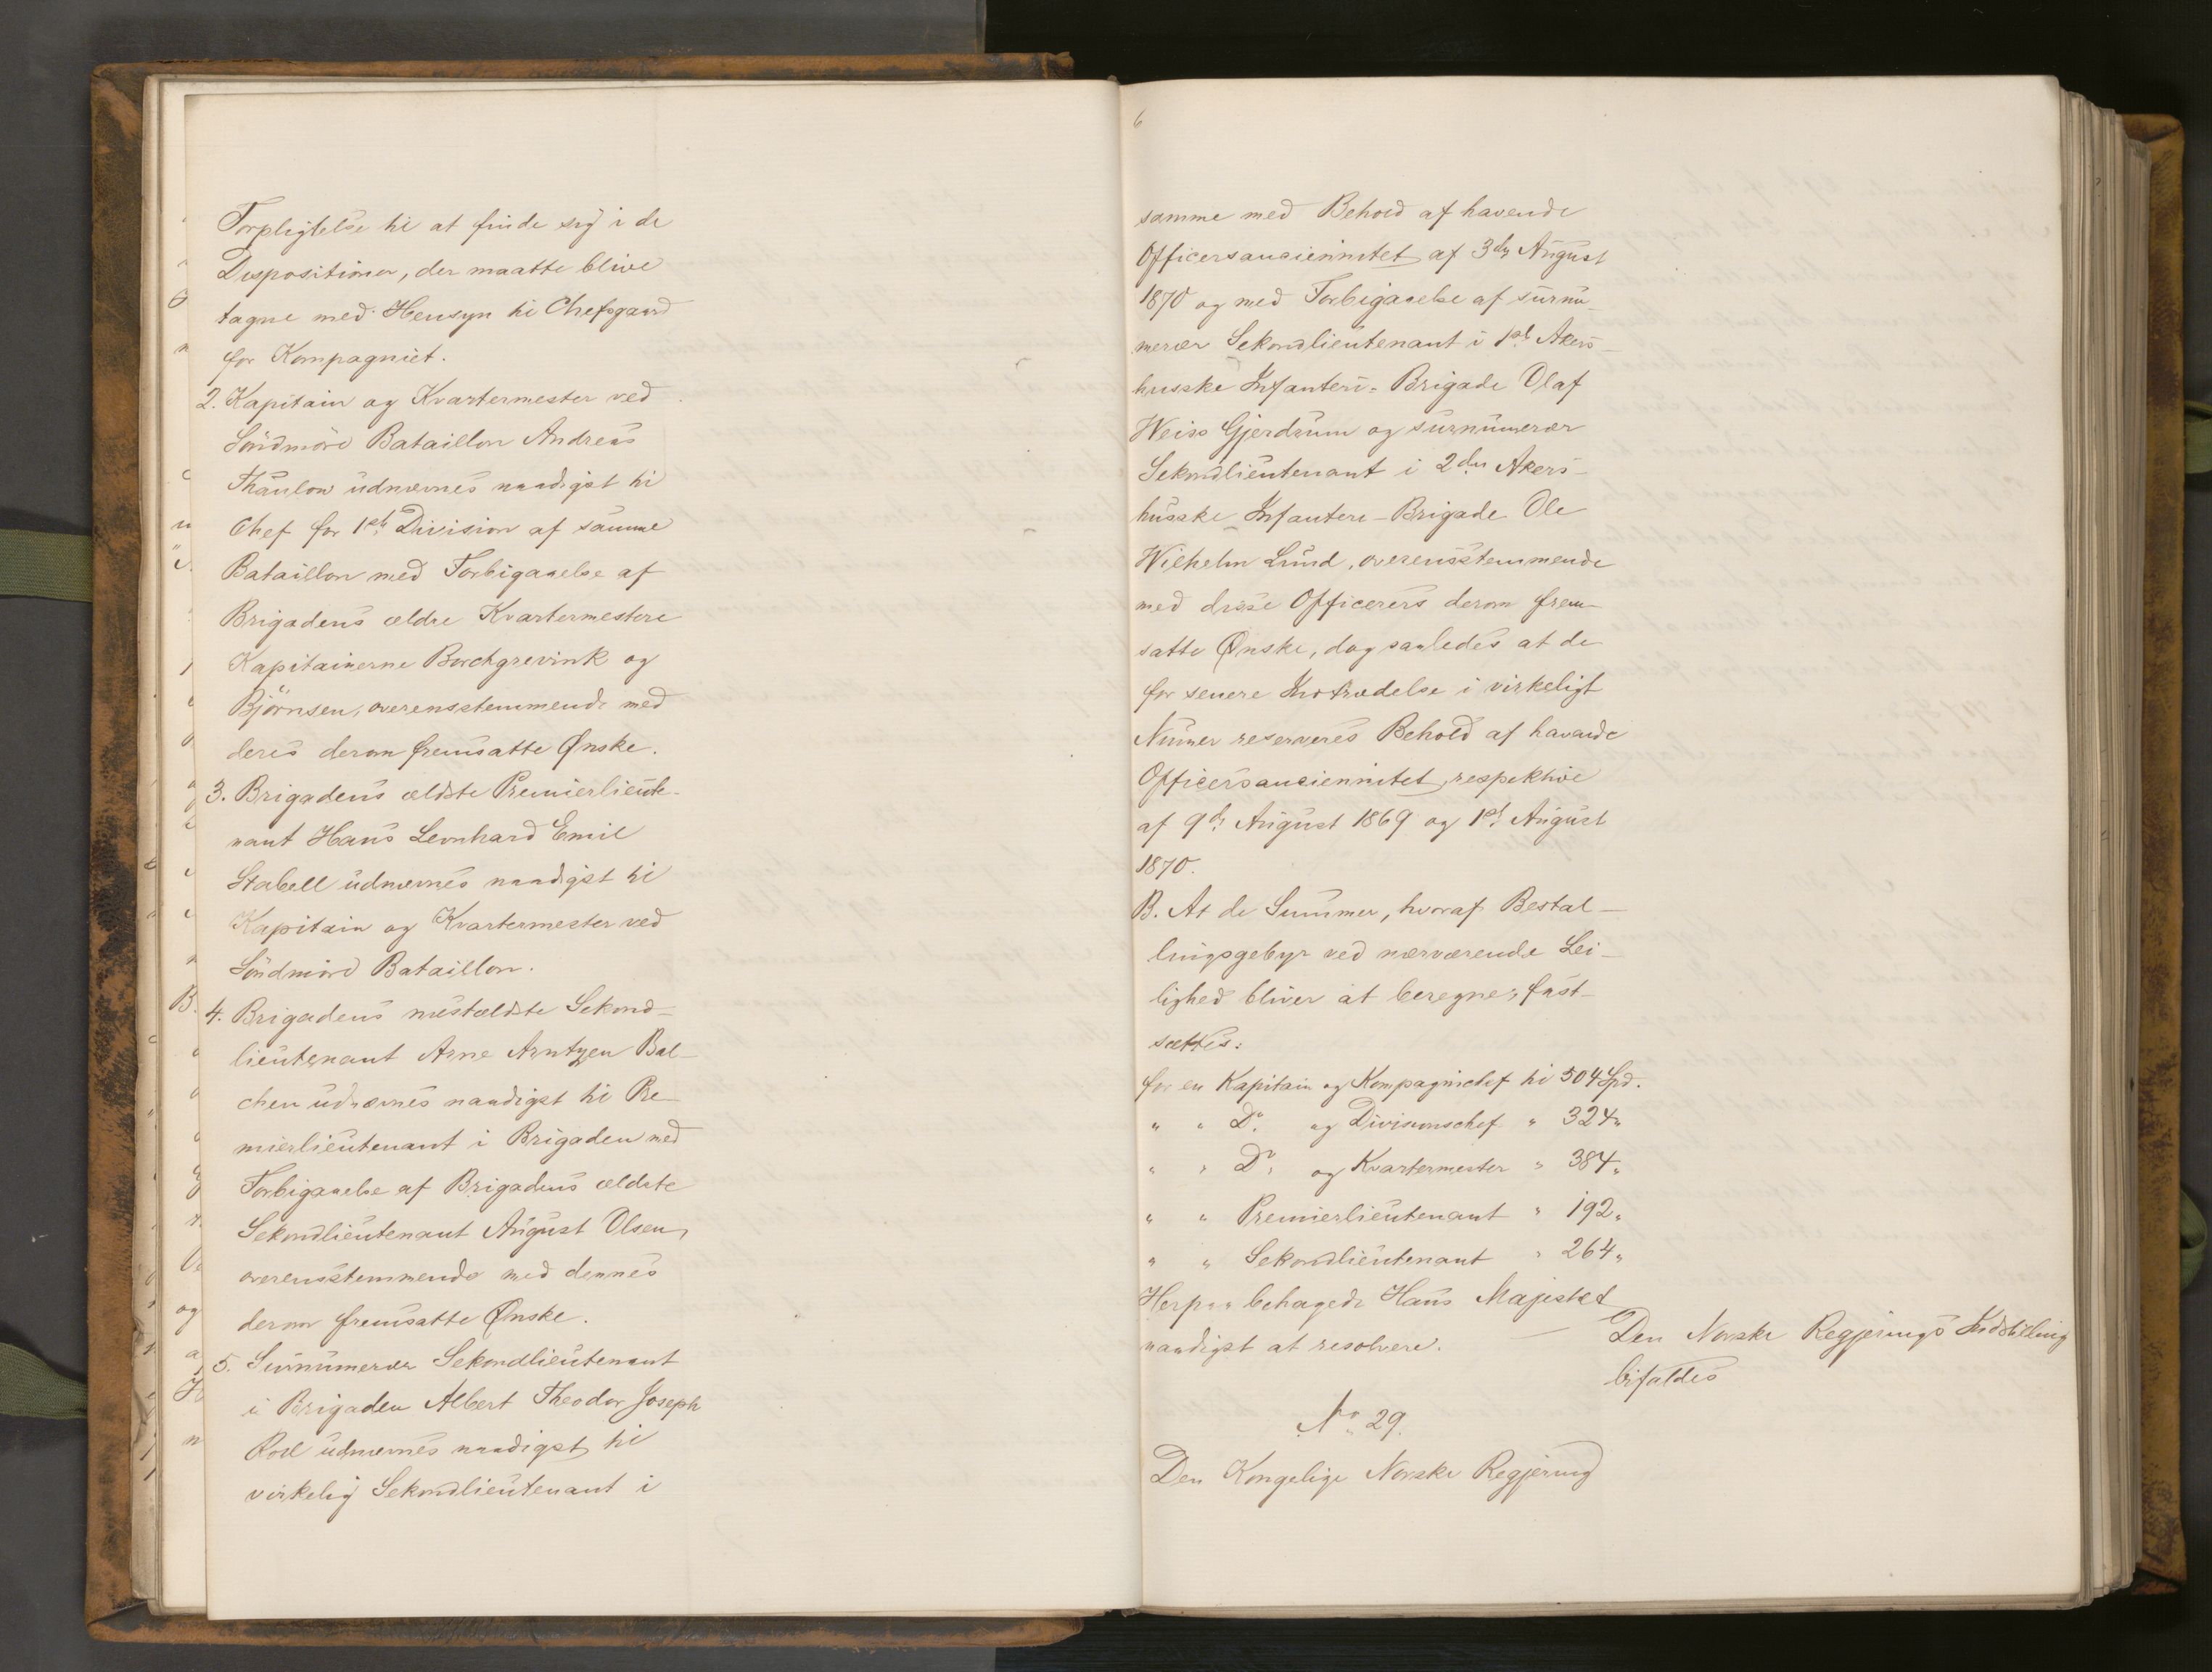 Forpligtelse til at finde sig i de
Dispositioner, der maatte blive
tagne med Hensyn til Chefsgaard
for Kompagniet.
2. Kapitain og Kvartermester ved
Söndmöre Bataillon Andreas
Thaulow udnævnes naadigst til
Chef for 1ste Division af samme
Bataillon med Forbigaaelse af
Brigadens ældre Kvartermestere
Kapitainerne Borchgrevink og
Björnsen, overensstemmende med
deres derom fremsatte Ønske.
3. Brigadens ældste Premierlieute-
nant Hans Leonhard Emil
Stabell udnævnes naadigst til
Kapitain og Kvartermester ved
Söndmöre Bataillon.
4. Brigadens næstældste Sekond-
lieutenant Arne Arntzen Bal-
chen udnævnes naadigst til Pre-
mierlieutenant i Brigaden med
Forbigaaelse af Brigadens ældste
Sekondlieutenant August Olsen,
overensstemmende med dennes
derom fremsatte Ønske.
5. Surnumerær Sekondlieutenant
i Brigaden Albert Theodor Joseph
udnævnes naadigst til
virkelig Sekondlieutenant i
6
samme med Behold af havende
Officersanciennitet af 3die August
1870 og med Forbigaaelse af surnu-
merær Sekondlieutenant i 1ste Akers-
husske Infanteri-Brigade Olaf
Weiss Gjerdrum og surnumerær
Sekondlieutenant i 2den Akers-
husske Infanteri-Brigade Ole
Wilhelm Lund, overensstemmende
med disse Officerers derom frem-
satte Ønske, dog saaledes at de
for senere Indtrædelse i virkeligt
Numer reserveres Behold af havende
Officersanciennitet, respektive
af 9de August 1869 og 1ste August
1870.
B. At de Summer, hvoraf Bestal-
lingsgebyr ved nærværende Lei-
lighed bliver at beregne, fast-
sættes:
for en Kapitain og Kompagnichef til 504 Spd.
" " Do. og Divisionschef " 324 "
" " Do. og Kvartermester " 384 "
" " Premierlieutenant " 192 "
" " Sekondlieutenant " 264 "
Herpaa behagede Hans Majestet
naadigst at resolvere. — Den Norske Regjerings Indstilling
bifaldes
No. 29.
Den Kongelige Norske Regjering